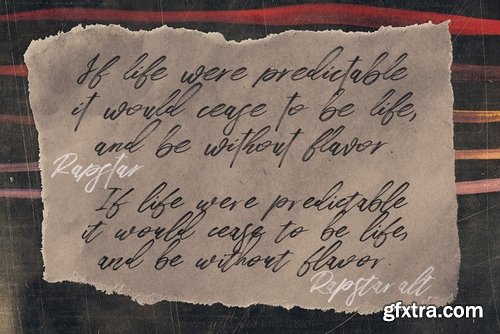 If life were predictable
it would cease to be life,
and be without flavor.
Rapstar
If life were predictable
it would cease to be life,
and be without flavor.
Rapstar alt
gfxtra.com